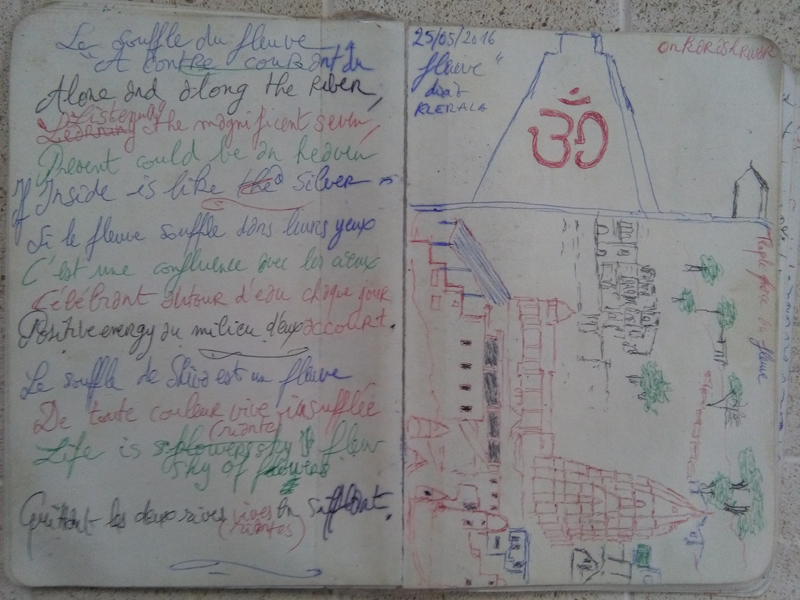 Le souffle du fleuve
"A contre courant du
fleuve"
Alone and along the river,
Listening
Learning the magnificent seven,
Present could be an heaven
If Inside is like the silver
Si le fleuve souffle dans leurs yeux
C'est une confluence avec les aïeux
Célébrant autour d'eau chaque jour
Positive energy au milieu d'eux accourt.
Le souffle de Shiva est un fleuve
De toute couleur vive insufflée
(riante)
Life is sky fleuv
sky of flowers
Quittant les deux rives vives en sifflant.
(riantes)
25/05/2016
KERALA
ॐ
onkareshwar
Temple face du fleuve